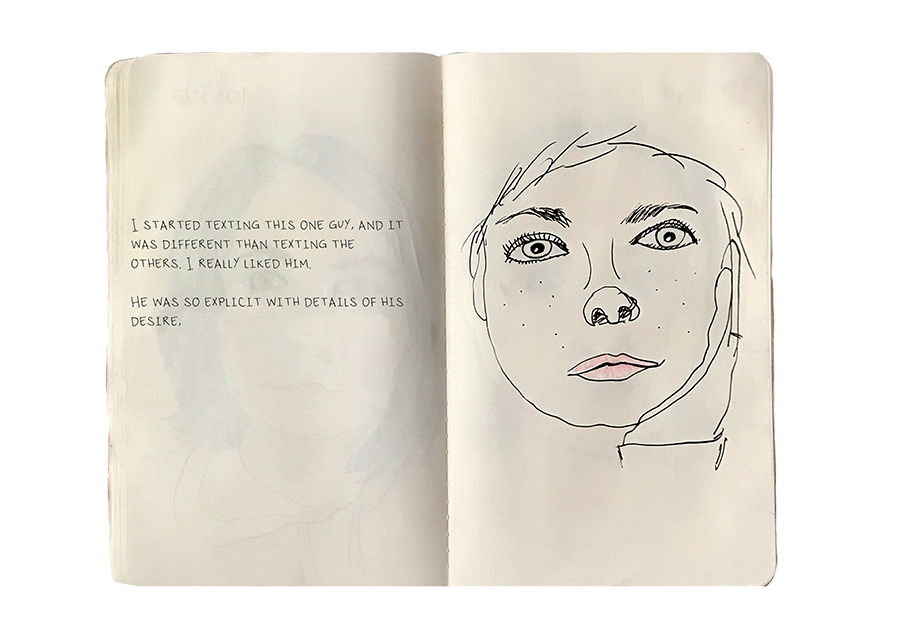 I STARTED TEXTING THIS ONE GUY, AND IT
WAS DIFFERENT THAN TEXTING THE
OTHERS. I REALLY LIKED HIM.
HE WAS SO EXPLICIT WITH DETAILS OF HIS
DESIRE.